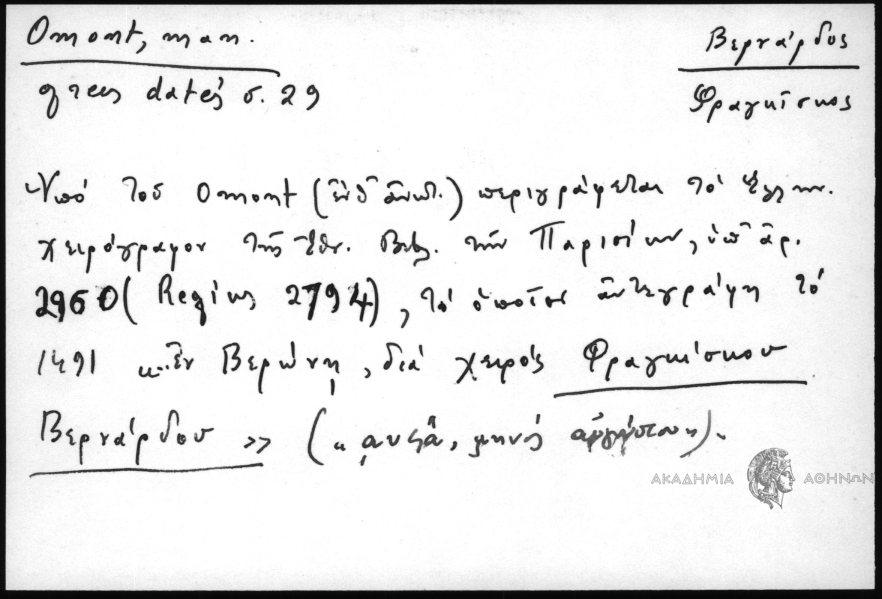 Omont, man.
grecs datés σ. 29
Βερνάρδος
Φραγκῖσκος
Ὑπό τοῦ Omont (ἔνθ' ἀνωτ.) περιγράφεται τό ἑλλην.
χειρόγραφον τῆς Ἐθν. Βιβλ. τῶν Παρισίων, ὑπ' ἀρ.
2960 (Regius 2794), τό ὁποῖον ἀντεγράφη τό
1491 «..ἐν Βερώνῃ, διά χειρός Φραγκίσκου
Βερνάρδου» (« ͵αυϟα, μηνός αὐγούστου»).
ΑΚΑΔΗΜΙΑ ΑΘΗΝΩΝ